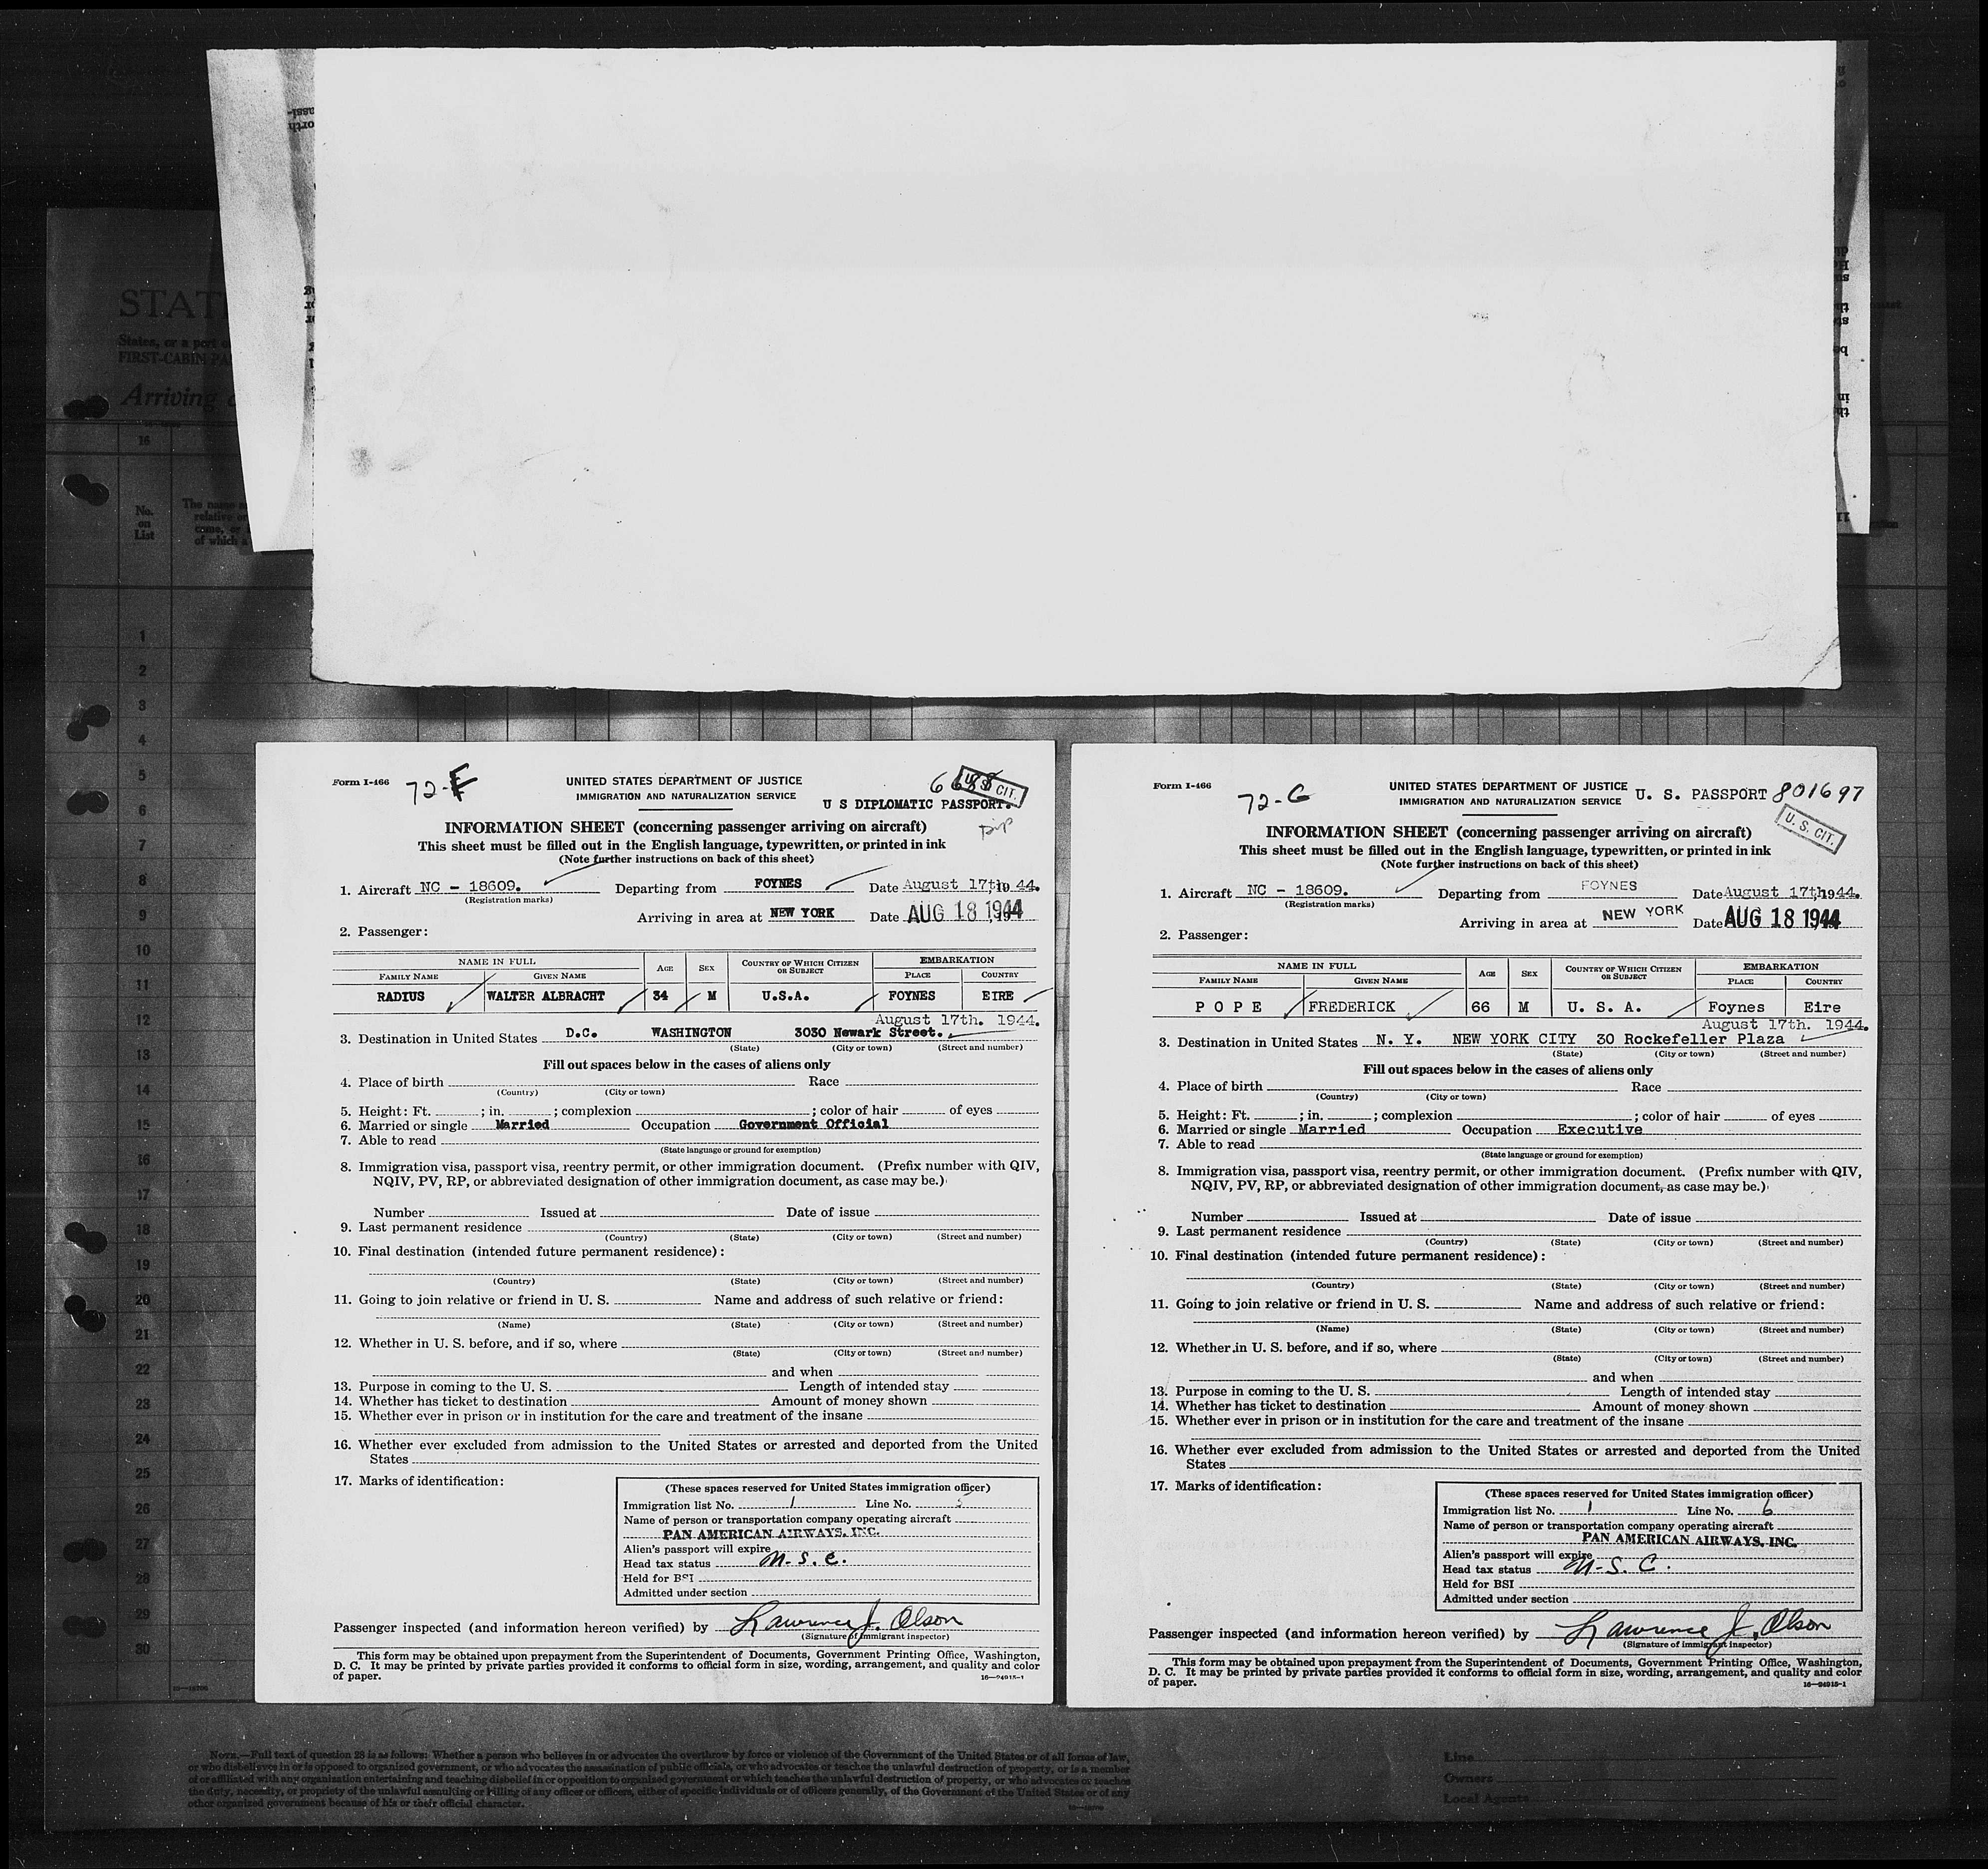 STAT
States, or a port
FIRST-CABIN PA
Arriving
16
No.
on
List
The name
relative or
come, or
of which a
1
2
3
4
5
6
7
8
9
10
11
12
13
14
15
16
17
18
19
20
21
22
23
24
25
26
27
28
29
30
Form I-466
72-F
UNITED STATES DEPARTMENT OF JUSTICE
IMMIGRATION AND NATURALIZATION SERVICE
U S DIPLOMATIC PASSPORT.
U. S. CIT.
INFORMATION SHEET (concerning passenger arriving on aircraft)
This sheet must be filled out in the English language, typewritten, or printed in ink
(Note further instructions on back of this sheet)
1. Aircraft NC - 18609. Departing from FOYNES Date August 17th, 19 44.
(Registration marks)
Arriving in area at NEW YORK Date AUG 18 1944
2. Passenger:
NAME IN FULL AGE SEX COUNTRY OF WHICH CITIZEN OR SUBJECT EMBARKATION
FAMILY NAME GIVEN NAME PLACE COUNTRY
RADIUS WALTER ALBRACHT 34 M U.S.A. FOYNES EIRE
August 17th. 1944.
3. Destination in United States D.C. WASHINGTON 3030 Newark Street.
(State) (City or town) (Street and number)
Fill out spaces below in the cases of aliens only
4. Place of birth Race
(Country) (City or town)
5. Height: Ft. ; in. ; complexion ; color of hair of eyes
6. Married or single Married Occupation Government Official
7. Able to read
(State language or ground for exemption)
8. Immigration visa, passport visa, reentry permit, or other immigration document. (Prefix number with QIV,
NQIV, PV, RP, or abbreviated designation of other immigration document, as case may be.)
Number Issued at Date of issue
9. Last permanent residence
(Country) (State) (City or town) (Street and number)
10. Final destination (intended future permanent residence):
(Country) (State) (City or town) (Street and number)
11. Going to join relative or friend in U. S. Name and address of such relative or friend:
(Name) (State) (City or town) (Street and number)
12. Whether in U. S. before, and if so, where
(State) (City or town) (Street and number)
and when
13. Purpose in coming to the U. S. Length of intended stay
14. Whether has ticket to destination Amount of money shown
15. Whether ever in prison or in institution for the care and treatment of the insane
16. Whether ever excluded from admission to the United States or arrested and deported from the United
States
17. Marks of identification:
(These spaces reserved for United States immigration officer)
Immigration list No. 1 Line No. 5
Name of person or transportation company operating aircraft
PAN AMERICAN AIRWAYS, INC.
Alien's passport will expire
Head tax status M. S. C.
Held for BSI
Admitted under section
Passenger inspected (and information hereon verified) by Lawrence J. Olson
(Signature of immigrant inspector)
This form may be obtained upon prepayment from the Superintendent of Documents, Government Printing Office, Washington,
D. C. It may be printed by private parties provided it conforms to official form in size, wording, arrangement, and quality and color
of paper.
16—24915-1
Form I-466
72-G
UNITED STATES DEPARTMENT OF JUSTICE
IMMIGRATION AND NATURALIZATION SERVICE
U. S. PASSPORT 801697
U. S. CIT.
INFORMATION SHEET (concerning passenger arriving on aircraft)
This sheet must be filled out in the English language, typewritten, or printed in ink
(Note further instructions on back of this sheet)
1. Aircraft NC - 18609. Departing from FOYNES Date August 17th, 1944.
(Registration marks)
Arriving in area at NEW YORK Date AUG 18 1944
2. Passenger:
NAME IN FULL AGE SEX COUNTRY OF WHICH CITIZEN OR SUBJECT EMBARKATION
FAMILY NAME GIVEN NAME PLACE COUNTRY
P O P E FREDERICK 66 M U. S. A. Foynes Eire
August 17th. 1944.
3. Destination in United States N. Y. NEW YORK CITY 30 Rockefeller Plaza
(State) (City or town) (Street and number)
Fill out spaces below in the cases of aliens only
4. Place of birth Race
(Country) (City or town)
5. Height: Ft. ; in. ; complexion ; color of hair of eyes
6. Married or single Married Occupation Executive
7. Able to read
(State language or ground for exemption)
8. Immigration visa, passport visa, reentry permit, or other immigration document. (Prefix number with QIV,
NQIV, PV, RP, or abbreviated designation of other immigration document, as case may be.)
Number Issued at Date of issue
9. Last permanent residence
(Country) (State) (City or town) (Street and number)
10. Final destination (intended future permanent residence):
(Country) (State) (City or town) (Street and number)
11. Going to join relative or friend in U. S. Name and address of such relative or friend:
(Name) (State) (City or town) (Street and number)
12. Whether in U. S. before, and if so, where
(State) (City or town) (Street and number)
and when
13. Purpose in coming to the U. S. Length of intended stay
14. Whether has ticket to destination Amount of money shown
15. Whether ever in prison or in institution for the care and treatment of the insane
16. Whether ever excluded from admission to the United States or arrested and deported from the United
States
17. Marks of identification:
(These spaces reserved for United States immigration officer)
Immigration list No. 1 Line No. 6
Name of person or transportation company operating aircraft
PAN AMERICAN AIRWAYS, INC.
Alien's passport will expire
Head tax status M. S. C.
Held for BSI
Admitted under section
Passenger inspected (and information hereon verified) by Lawrence J. Olson
(Signature of immigrant inspector)
This form may be obtained upon prepayment from the Superintendent of Documents, Government Printing Office, Washington,
D. C. It may be printed by private parties provided it conforms to official form in size, wording, arrangement, and quality and color
of paper.
16—24915-1
NOTE.—Full text of question 28 is as follows: Whether a person who believes in or advocates the overthrow by force or violence of the Government of the United States or of all forms of law,
or who disbelieves in or is opposed to organized government, or who advocates the assassination of public officials, or who advocates or teaches the unlawful destruction of property, or is a member
of or affiliated with any organization entertaining and teaching disbelief in or opposition to organized government or which teaches the unlawful destruction of property, or who advocates or teaches
the duty, necessity, or propriety of the unlawful assaulting or killing of any officer or officers, either of specific individuals or of officers generally, of the Government of the United States or of any
other organized government because of his or their official character.
Line
Owners
Local Agents